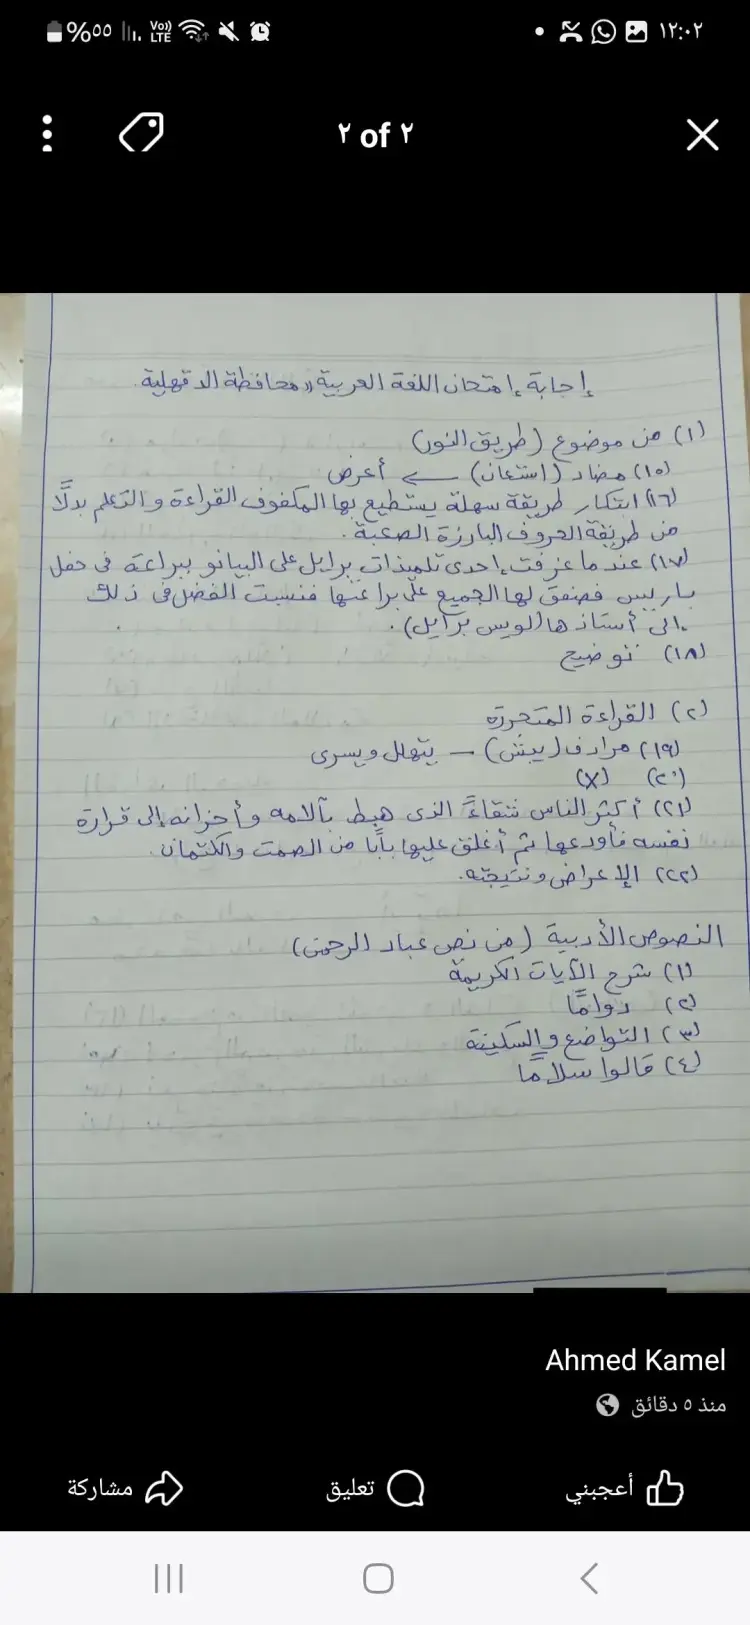 ١٢:٠٢
%٥٥
Vo))
LTE
٢ of ٢
إجابة إمتحان اللغة العربية "محافظة الدقهلية.
(١) من موضوع (طريق النور)
(١٥) مضاد (استعان) ← أعرض
(١٦) ابتكار طريقة سهلة يستطيع بها المكفوف القراءة والتعلم بدلًا
من طريقة الحروف البارزة الصعبة.
(١٧) عندما عزفت إحدى تلميذات برايل على البيانو ببراعة فى حفل
باريس فصفق لها الجميع على براعتها فنسبت الفضل فى ذلك
إلى أستاذها (لويس برايل).
(١٨) توضيح
(٢) القراءة المتحررة
(١٩) مرادف (يبش) - يتهلل ويسرى
(٢٠) (X)
(٢١) أكثر الناس شقاءً الذى هبط بآلامه وأحزانه إلى قرارة
نفسه فأودعها ثم أغلق عليها بابًا من الصمت والكتمان.
(٢٢) الإعراض ونتيجته.
النصوص الأدبية (من نص عباد الرحمن)
(١) شرح الآيات الكريمة
(٢) دوامًا
(٣) التواضع والسكينة
(٤) قالوا سلامًا
Ahmed Kamel
منذ ٥ دقائق
أعجبني
تعليق
مشاركة